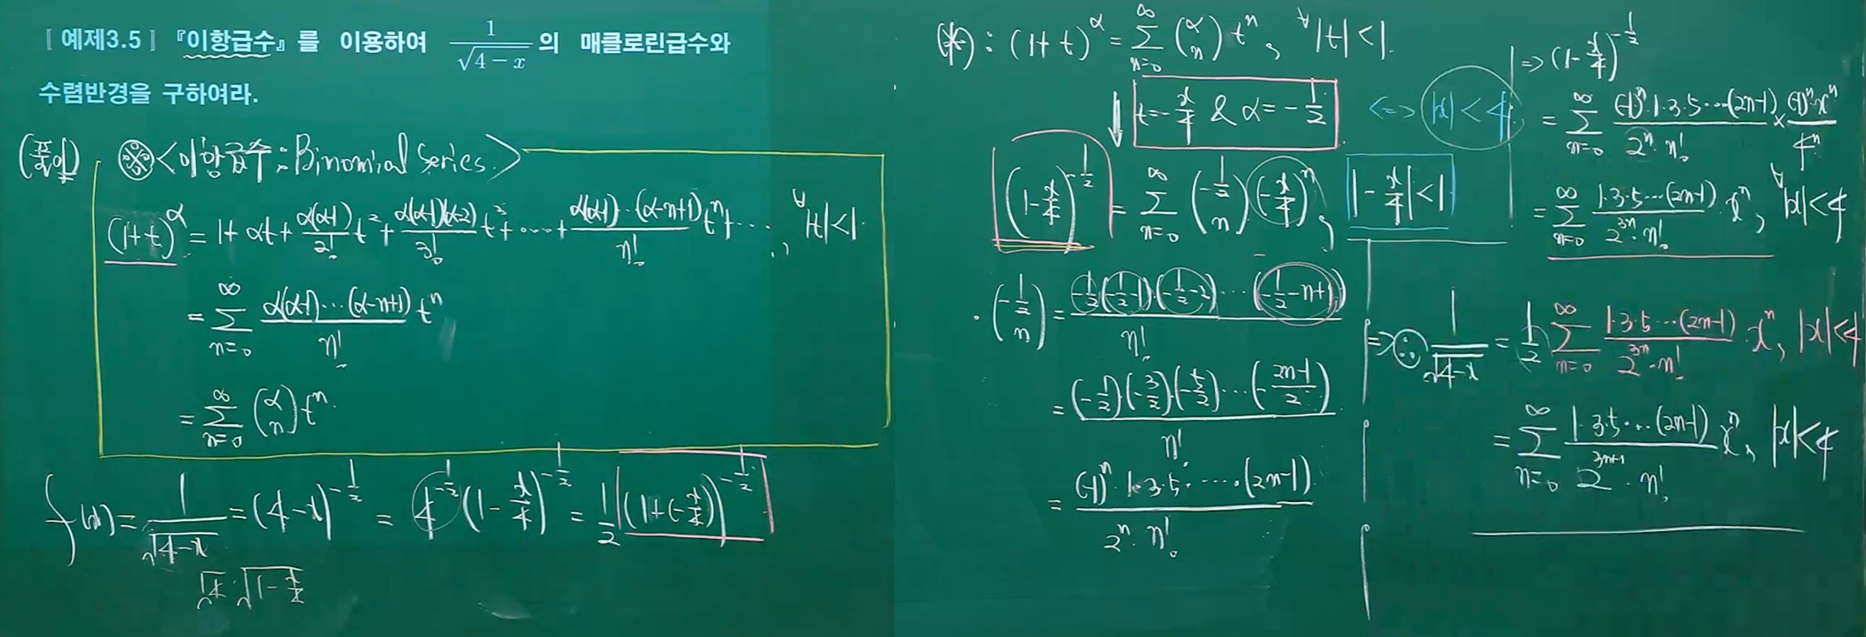 [ 예제3.5 ] 『이항급수』를 이용하여 1/√(4−x) 의 매클로린급수와
수렴반경을 구하여라.
(풀이) ※ <이항급수 : Binomial Series.>
(1+t)^α = 1+αt+ α(α-1)/2! t² + α(α-1)(α-2)/3! t³ + ⋯ + α(α-1)⋯(α-n+1)/n! tⁿ + ⋯ , ∀|t|<1.
= ∑_{n=0}^{∞} α(α-1)⋯(α-n+1)/n! tⁿ
= ∑_{n=0}^{∞} (α n) tⁿ.
f(x) = 1/√(4-x) = (4-x)^{-1/2} = 4^{-1/2} (1-x/4)^{-1/2} = 1/2 (1+(-x/4))^{-1/2}
√4·√(1-x/4)
(※) : (1+t)^α = ∑_{n=0}^{∞} (α n) tⁿ , ∀|t|<1.
↓ t=-x/4 & α=-1/2 <=> |x|<4
(1-x/4)^{-1/2} = ∑_{n=0}^{∞} (-1/2 n) (-x/4)ⁿ , |-x/4|<1
· (-1/2 n) = (-1/2)(-1/2-1)(-1/2-2)⋯(-1/2-n+1) / n!
= (-1/2)·(-3/2)·(-5/2)⋯(-(2n-1)/2) / n!
= (-1)ⁿ·1·3·5·⋯·(2n-1) / 2ⁿ·n!
=> (1-x/4)^{-1/2}
= ∑_{n=0}^{∞} (-1)ⁿ·1·3·5⋯(2n-1) / 2ⁿ·n! × (-1)ⁿ·xⁿ / 4ⁿ
= ∑_{n=0}^{∞} 1·3·5⋯(2n-1) / 2^{3n}·n! · xⁿ , ∀|x|<4
=> ∴ 1/√(4-x) = 1/2 ∑_{n=0}^{∞} 1·3·5⋯(2n-1) / 2^{3n}·n! · xⁿ, |x|<4
= ∑_{n=0}^{∞} 1·3·5⋯(2n-1) / 2^{3n+1}·n! xⁿ, |x|<4